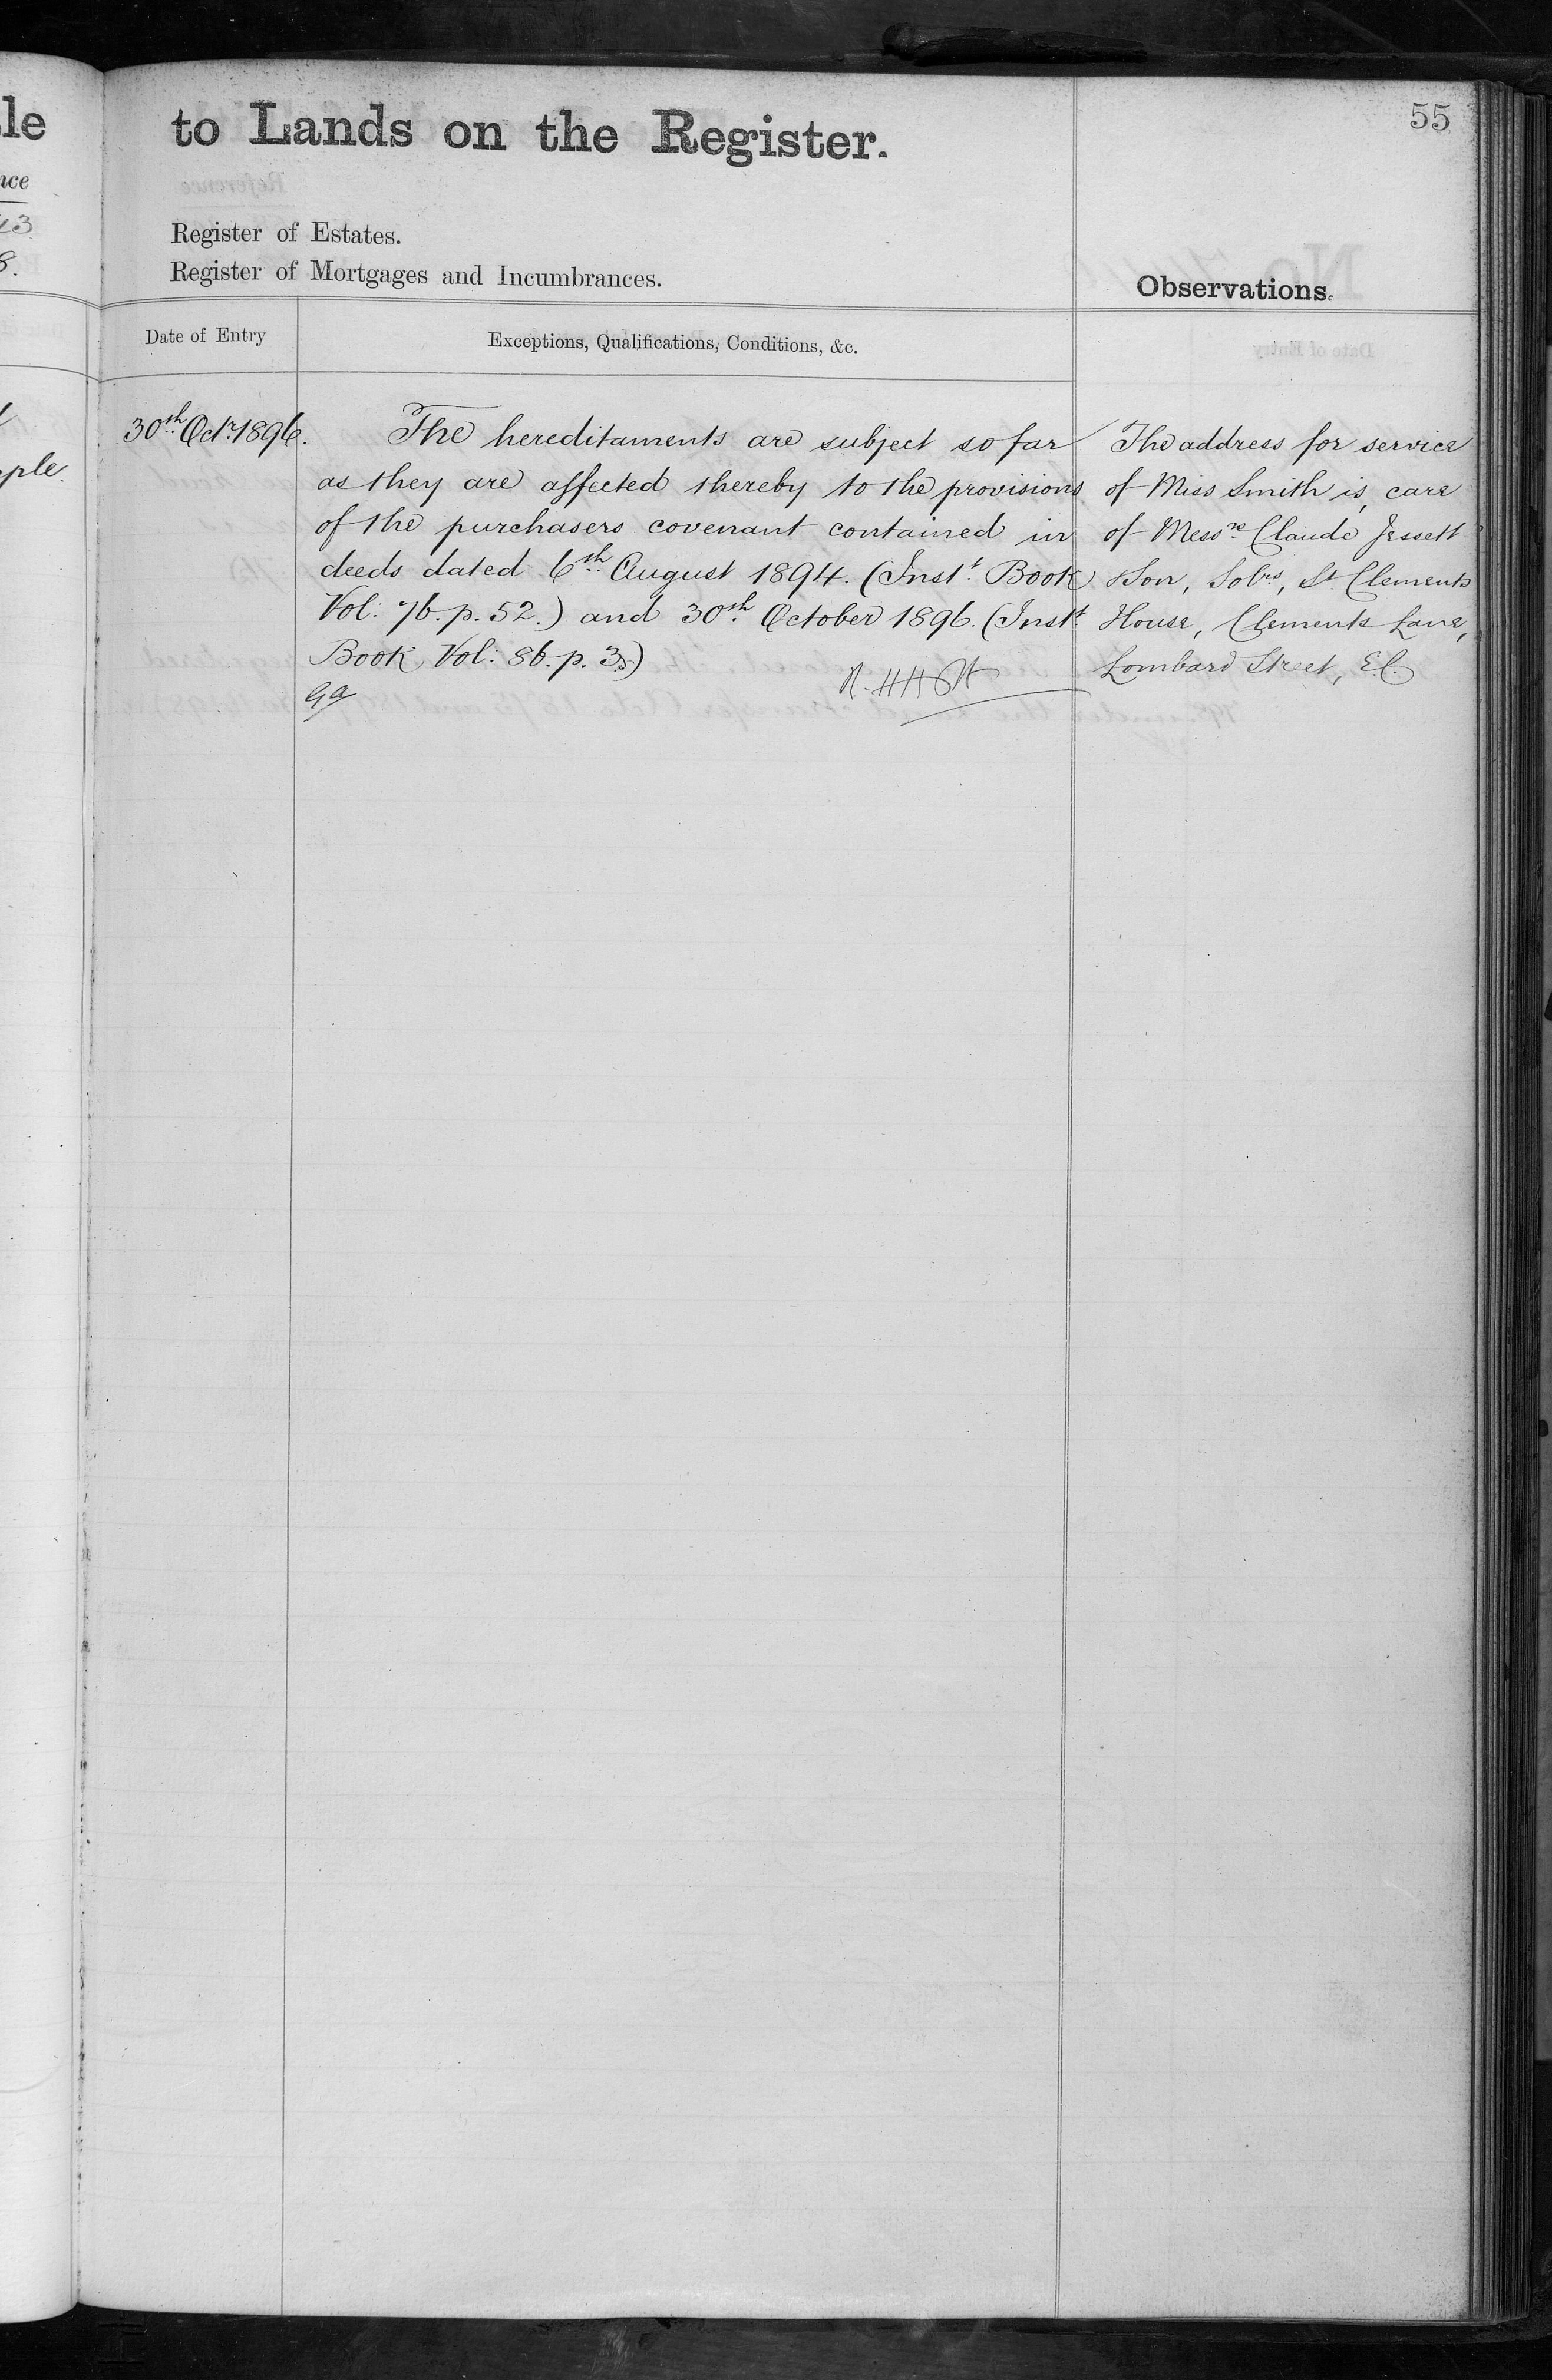 55
to Lands on the Register.
Register of Estates.
Register of Mortgages and Incumbrances.
Observations.
Date of Entry
Exceptions, Qualifications, Conditions, &c.
30th Octr 1896.
The hereditaments are subject so far
as they are affected thereby to the provisions
of the purchasers covenant contained in
deeds dated 6th August 1894. (Instt Book
Vol: 76. p. 52.) and 30th October 1896. (Instt
Book Vol: 86. p. 3.)
The address for service
of Miss Smith is, care
of Messrs Claude Jessett
& Son, Solrs, St. Clements
House, Clements Lane,
Lombard Street, E.C.